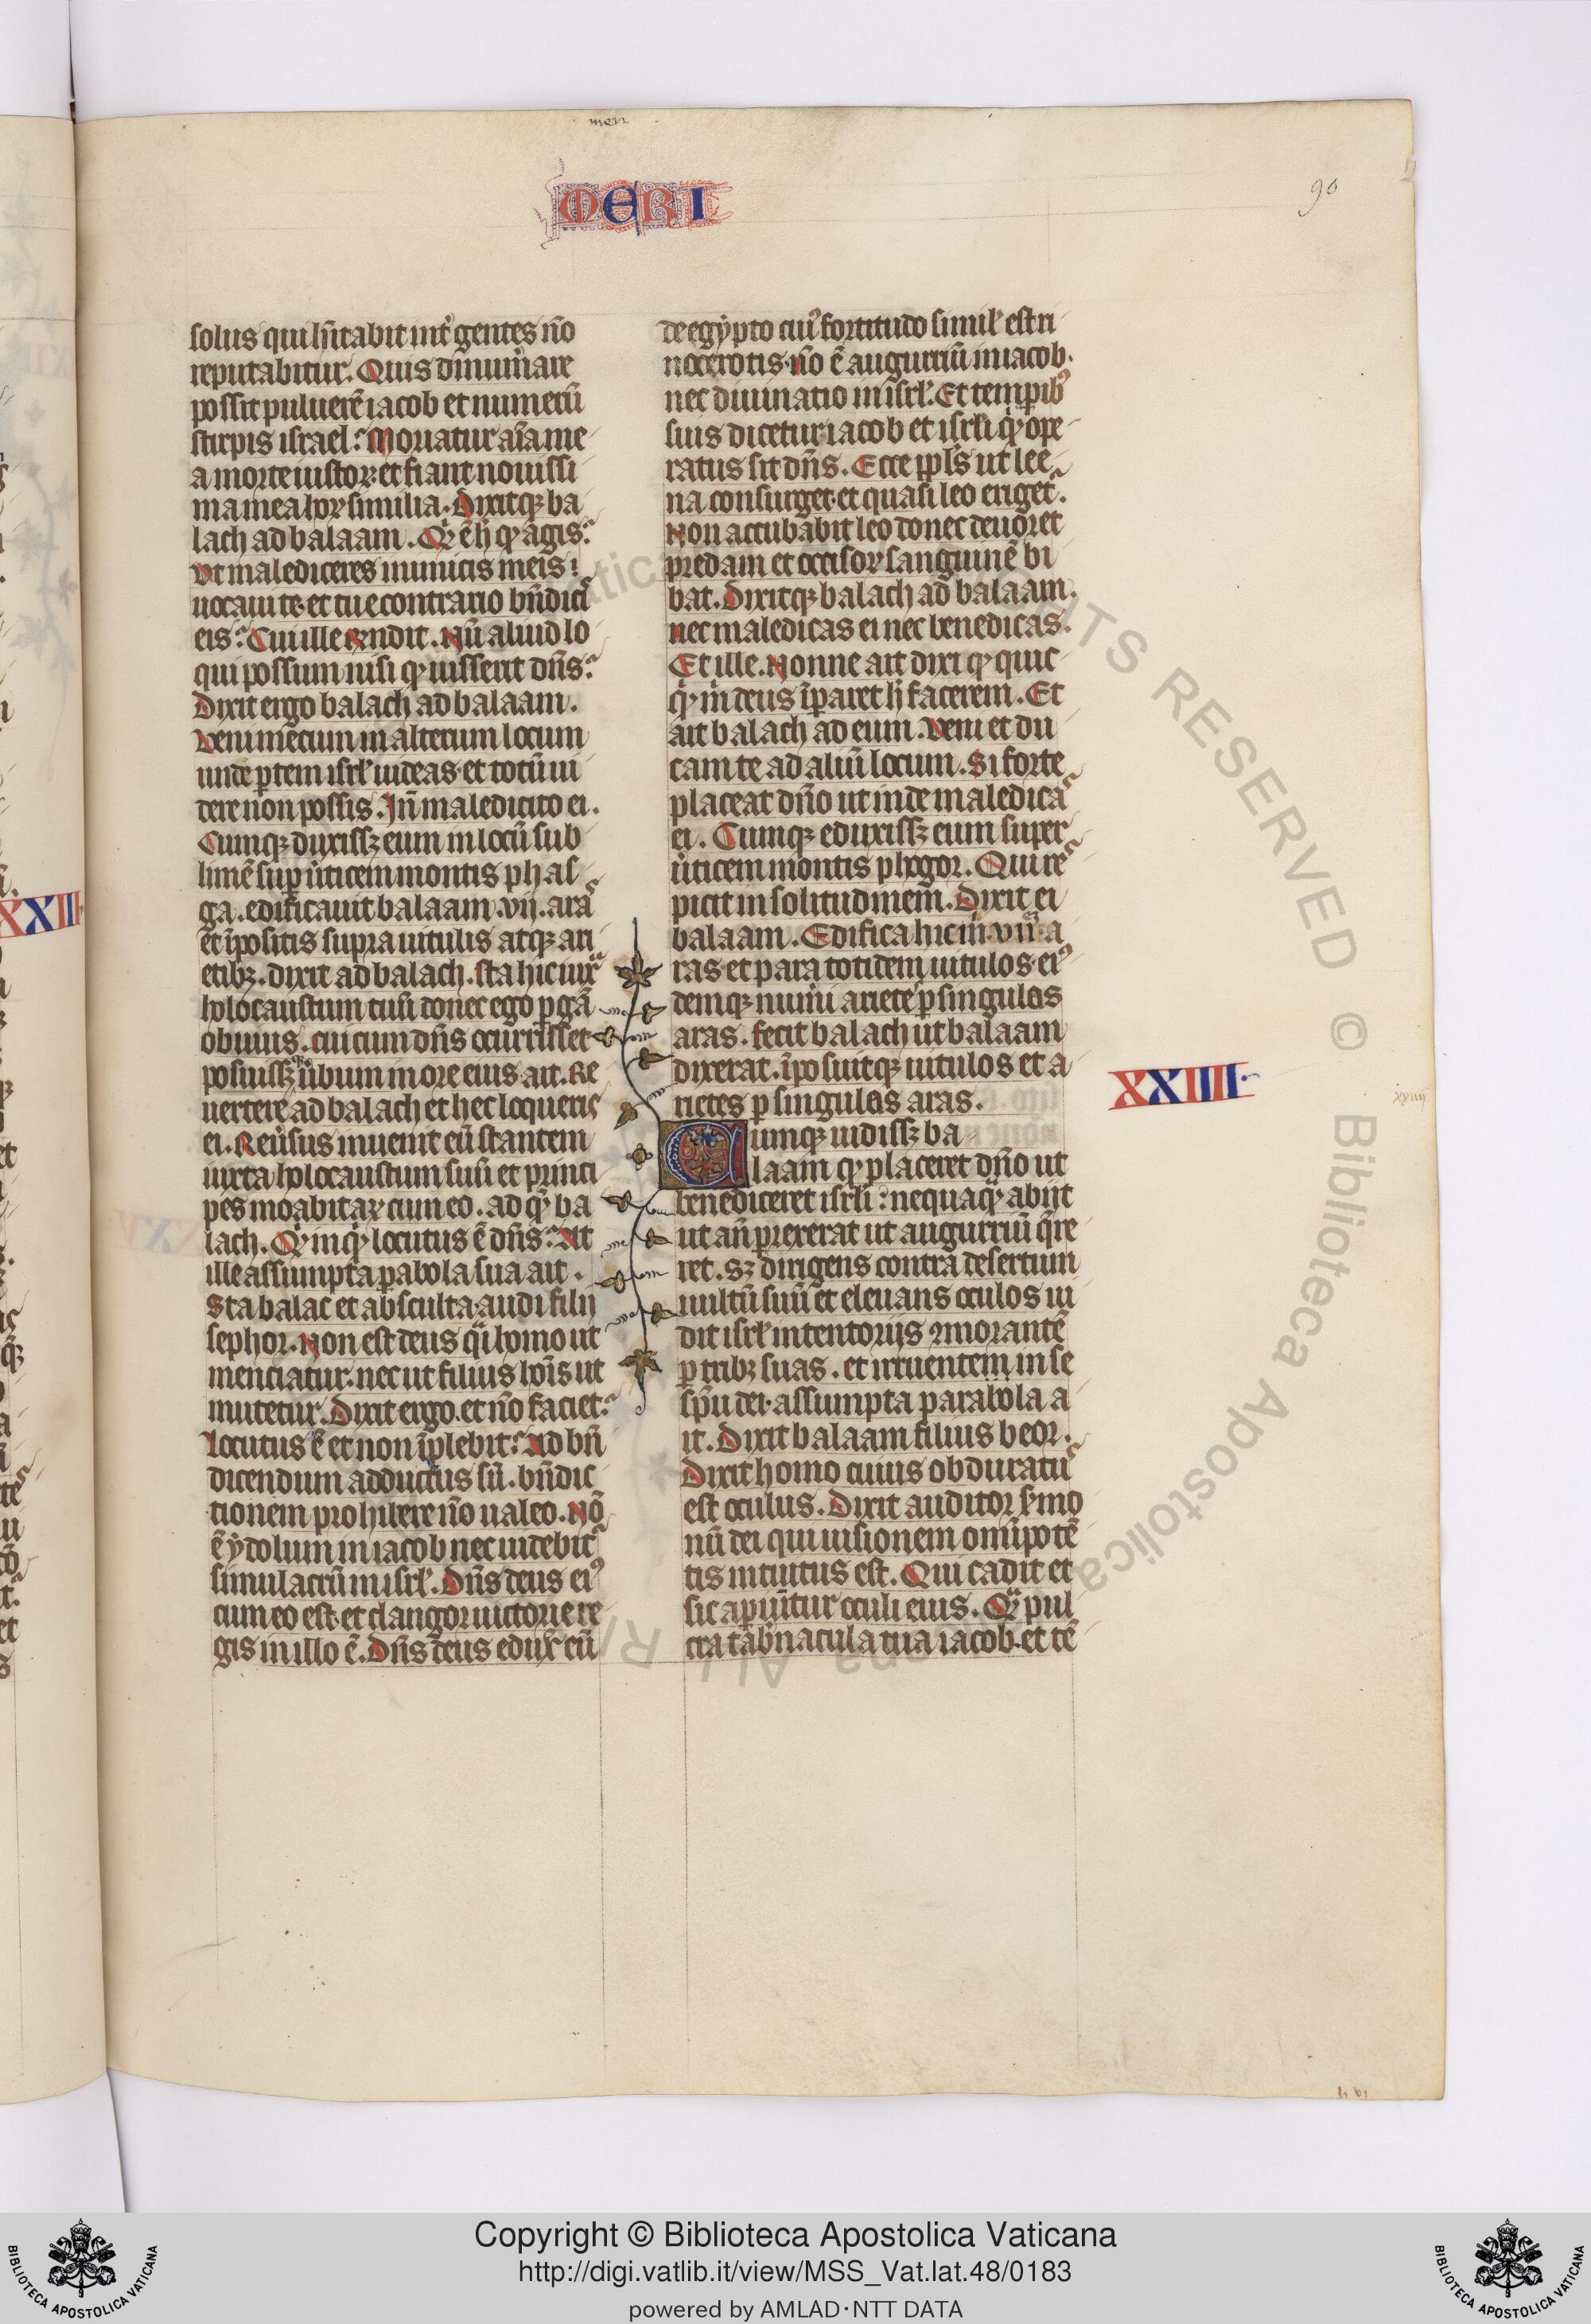 meri
MERI
90
solus qui hītabit int̄ gentes nō
reputabitur. Quis dinum̄are
possit puluerē iacob et numerū
stirpis israel? Moriatur aīa me
a morte iustoꝝ et fiant nouissi
ma mea hoꝝ similia. Dixitqꝫ ba
lach ad balaam. Qͥd ē h̄ ꝙ agis?
Vt malediceres inimicis meis
uocaui te et tu econtrario bn̄dicis
eis? Cui ille rn̄dit. Nū aliud lo
qui possum nisi ꝙ iusserit dn̄s?
Dixit ergo balach ad balaam.
Veni mecum in alterum locum
unde ꝑtem isrl̄ uideas et totū ui
dere non possis. Jn̄ maledicito ei.
Cumqꝫ duxissꝫ eum in locū sub
limē suꝑ ūticem montis phas
ga. edificauit balaam .vij. aras
et īpositis supra uitulis atqꝫ ari
etibꝫ. dixit ad balach. sta hic iuxͣ
holocaustum tuū donec ego ꝑgā
obuius. cui cum dn̄s ocurrisset
posuissꝫqꝫ ūbum in ore eius ait. Re
uertere ad balach et hec loqueris
ei. Reūsus inuenit eū stantem
iuxta holocaustum suū et princi
pes moabitaꝝ cum eo. ad qͦꝫ ba
lach. Qͥd inqͥd locutus ē dn̄s? At
ille assumpta ꝑabola sua ait.
Sta balac et absculta. audi fili
sephor. Non est deus qͣi homo ut
menciatur. nec ut filius hoīs ut
mutetur. Dixit ergo. et nō faciet?
Locutus ē et non īplebit? Ad bn̄
dicendum adductus sū. bn̄dic
tionem prohibere nō ualeo. Nō
ē ydolum in iacob nec uidebitͬ
simulacrū in isrl̄. Dn̄s deus eiꝰ
cum eo est. et clangor uictorie re
gis in illo ē. Dn̄s deus eduxͭ eū
de egypto cuiꝰ fortitudo simil̄ est ri
nocerotis. nō ē auguriū in iacob.
nec diuinatio in isrl̄. Et temꝑibꝰ
suis dicetur iacob et isrl̄i qͥd ope
ratus sit dn̄s. Ecce ppl̄s ut lee
na consurget et quasi leo erigetͬ.
Non accubabit leo donec deuoret
predam et occisoꝝ sanguinē bi
bat. Dixitqꝫ balach ad balaam.
nec maledicas ei nec benedicas.
Et ille. Nonne ait dixi ꝙ quic
qͥd m̄ deus īꝑaret h̄ facerem. Et
ait balach ad eum. Veni et du
cam te ad aliū locum. Si forte
placeat dn̄o ut inde maledicas
ei. Cumqꝫ eduxissꝫ eum super
ūticem montis phogor. Qui res
picit in solitudinem. Dixit ei
balaam. Edifica hic m̄ .vij. a
ras et para totidem uitulos eiꝰ
demqꝫ num̄i arietes ꝑ singulas
aras. fecit balach ut balaam
dixerat. īposuitqꝫ uitulos et a
rietes ꝑ singulas aras.
XXIIII
xxiiij
Cumqꝫ uidissꝫ ba
laam ꝙ placeret dn̄o ut
benediceret isrl̄i: nequaqͣꝫ abijt
ut an̄ ꝑrexerat ut auguriū qͣ̄re
ret. Sꝫ dirigens contra desertum
uultū suū et eleuans oculos ui
dit isrl̄ in tentorijs ꝯmorantē
ꝑ tribꝫ suas. et irruentem in se
spū dei. assumpta parabola a
it. Dixit balaam filius beor.
Dixit homo cuius obduratus
est oculus. Dixit auditor s̄mo
nū dei qui uisionem omīpotē
tis intuitus est. Qui cadit et
sic aꝑiūtur oculi eius. Qͣꝫ pul
cra tab̄nacula tua iacob. et tē
XXIII
Copyright © Biblioteca Apostolica Vaticana
http://digi.vatlib.it/view/MSS_Vat.lat.48/0183
powered by AMLAD·NTT DATA
BIBLIOTECA APOSTOLICA VATICANA
BIBLIOTECA APOSTOLICA VATICANA